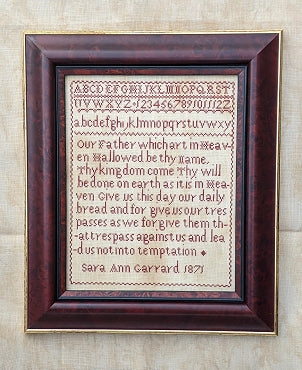 ABCDEFGHIJKLMNOPQRST
UVWXYZ·123456789101112
abcdefghijklmnopqrstuvwxy
Our Father which art in Heav
en Hallowed be thy Name.
Thy kingdom come Thy will
be done on earth as it is in Hea
ven Give us this day our daily
bread and for give us our tres
passes as we for give them th-
at trespass against us and lea-
d us not into temptation
Sara Ann Garrard 1871